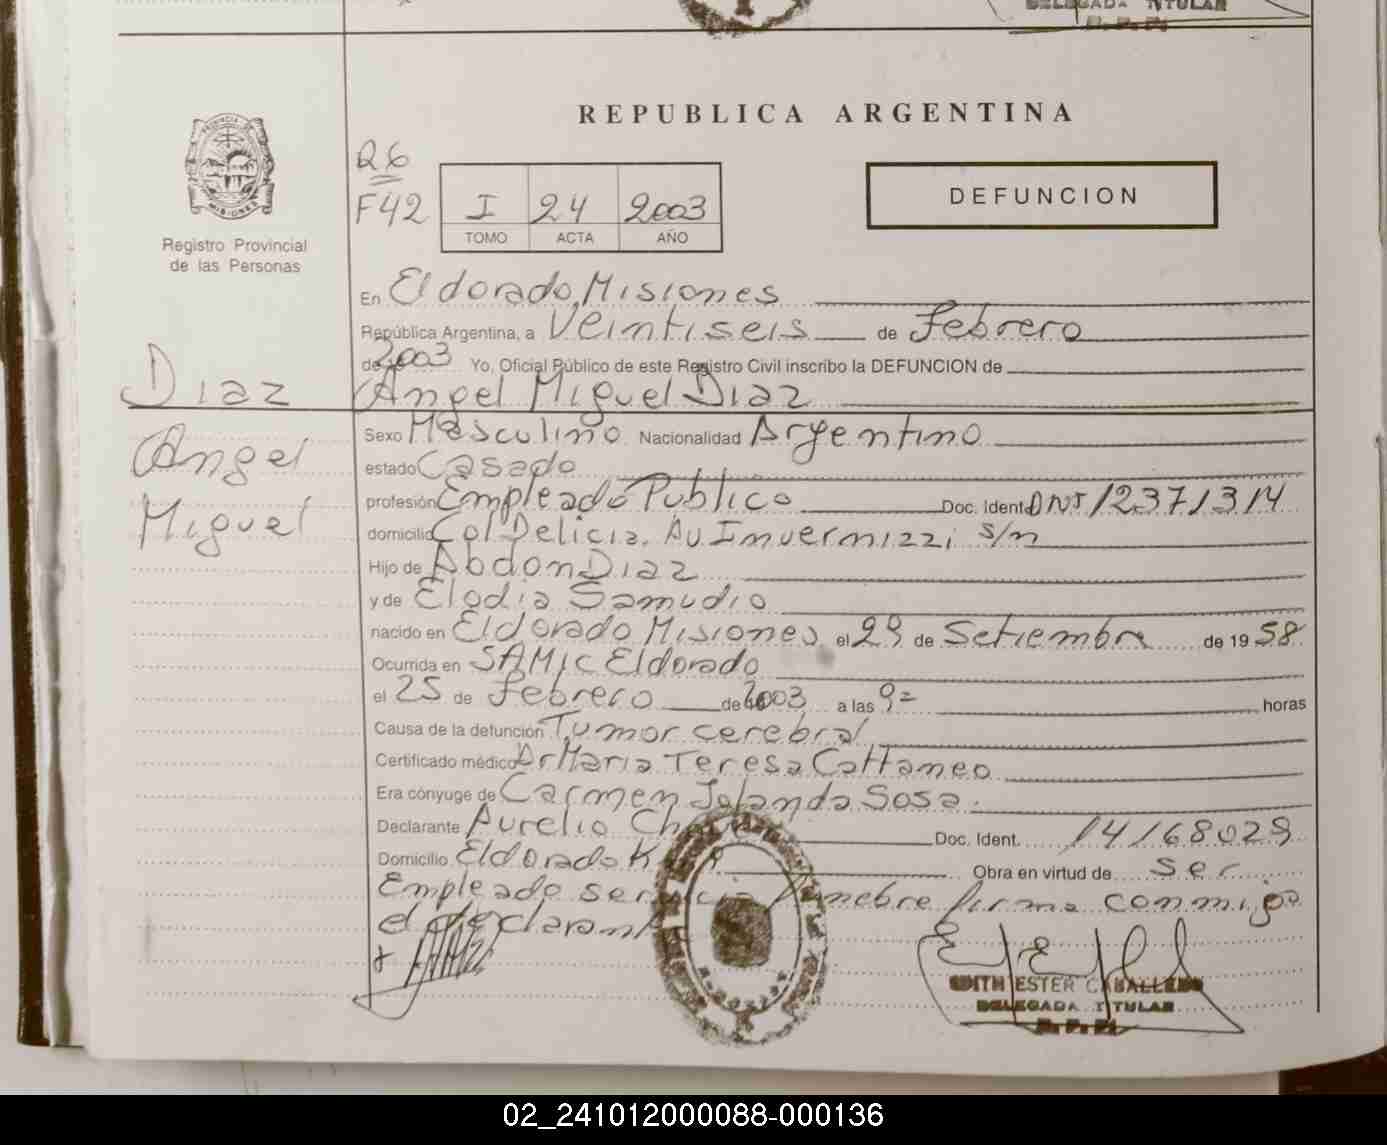 DELEGADA TITULAR
R.P.P.
REPUBLICA ARGENTINA
PROVINCIA DE
MISIONES
Registro Provincial
de las Personas
26
F42
I 24 2003
TOMO ACTA AÑO
DEFUNCION
En Eldorado, Misiones
República Argentina, a Veintiseis de Febrero
de 2003 Yo, Oficial Público de este Registro Civil inscribo la DEFUNCION de
Diaz
Angel Miguel Diaz
Angel
Miguel
Sexo Masculino Nacionalidad Argentino
estado Casado
profesión Empleado Publico Doc. Ident. DNI 12371314
domicilio Col Delicia. Av. Invernizzi s/n
Hijo de Abdon Diaz
y de Elodia Samudio
nacido en Eldorado Misiones el 29 de Setiembre de 1958
Ocurrida en SAMIC Eldorado
el 25 de Febrero de 2003 a las 9= horas
Causa de la defunción Tumor cerebral
Certificado médico Dr Maria Teresa Cattaneo
Era cónyuge de Carmen Jolanda Sosa.
Declarante Aurelio Doc. Ident. 14168029
Domicilio Eldorado K Obra en virtud de ser
Empleado servicio funebre firma conmigo
el declarante
EDITH ESTER CABALLERO
DELEGADA TITULAR
R.P.P.
02_241012000088-000136